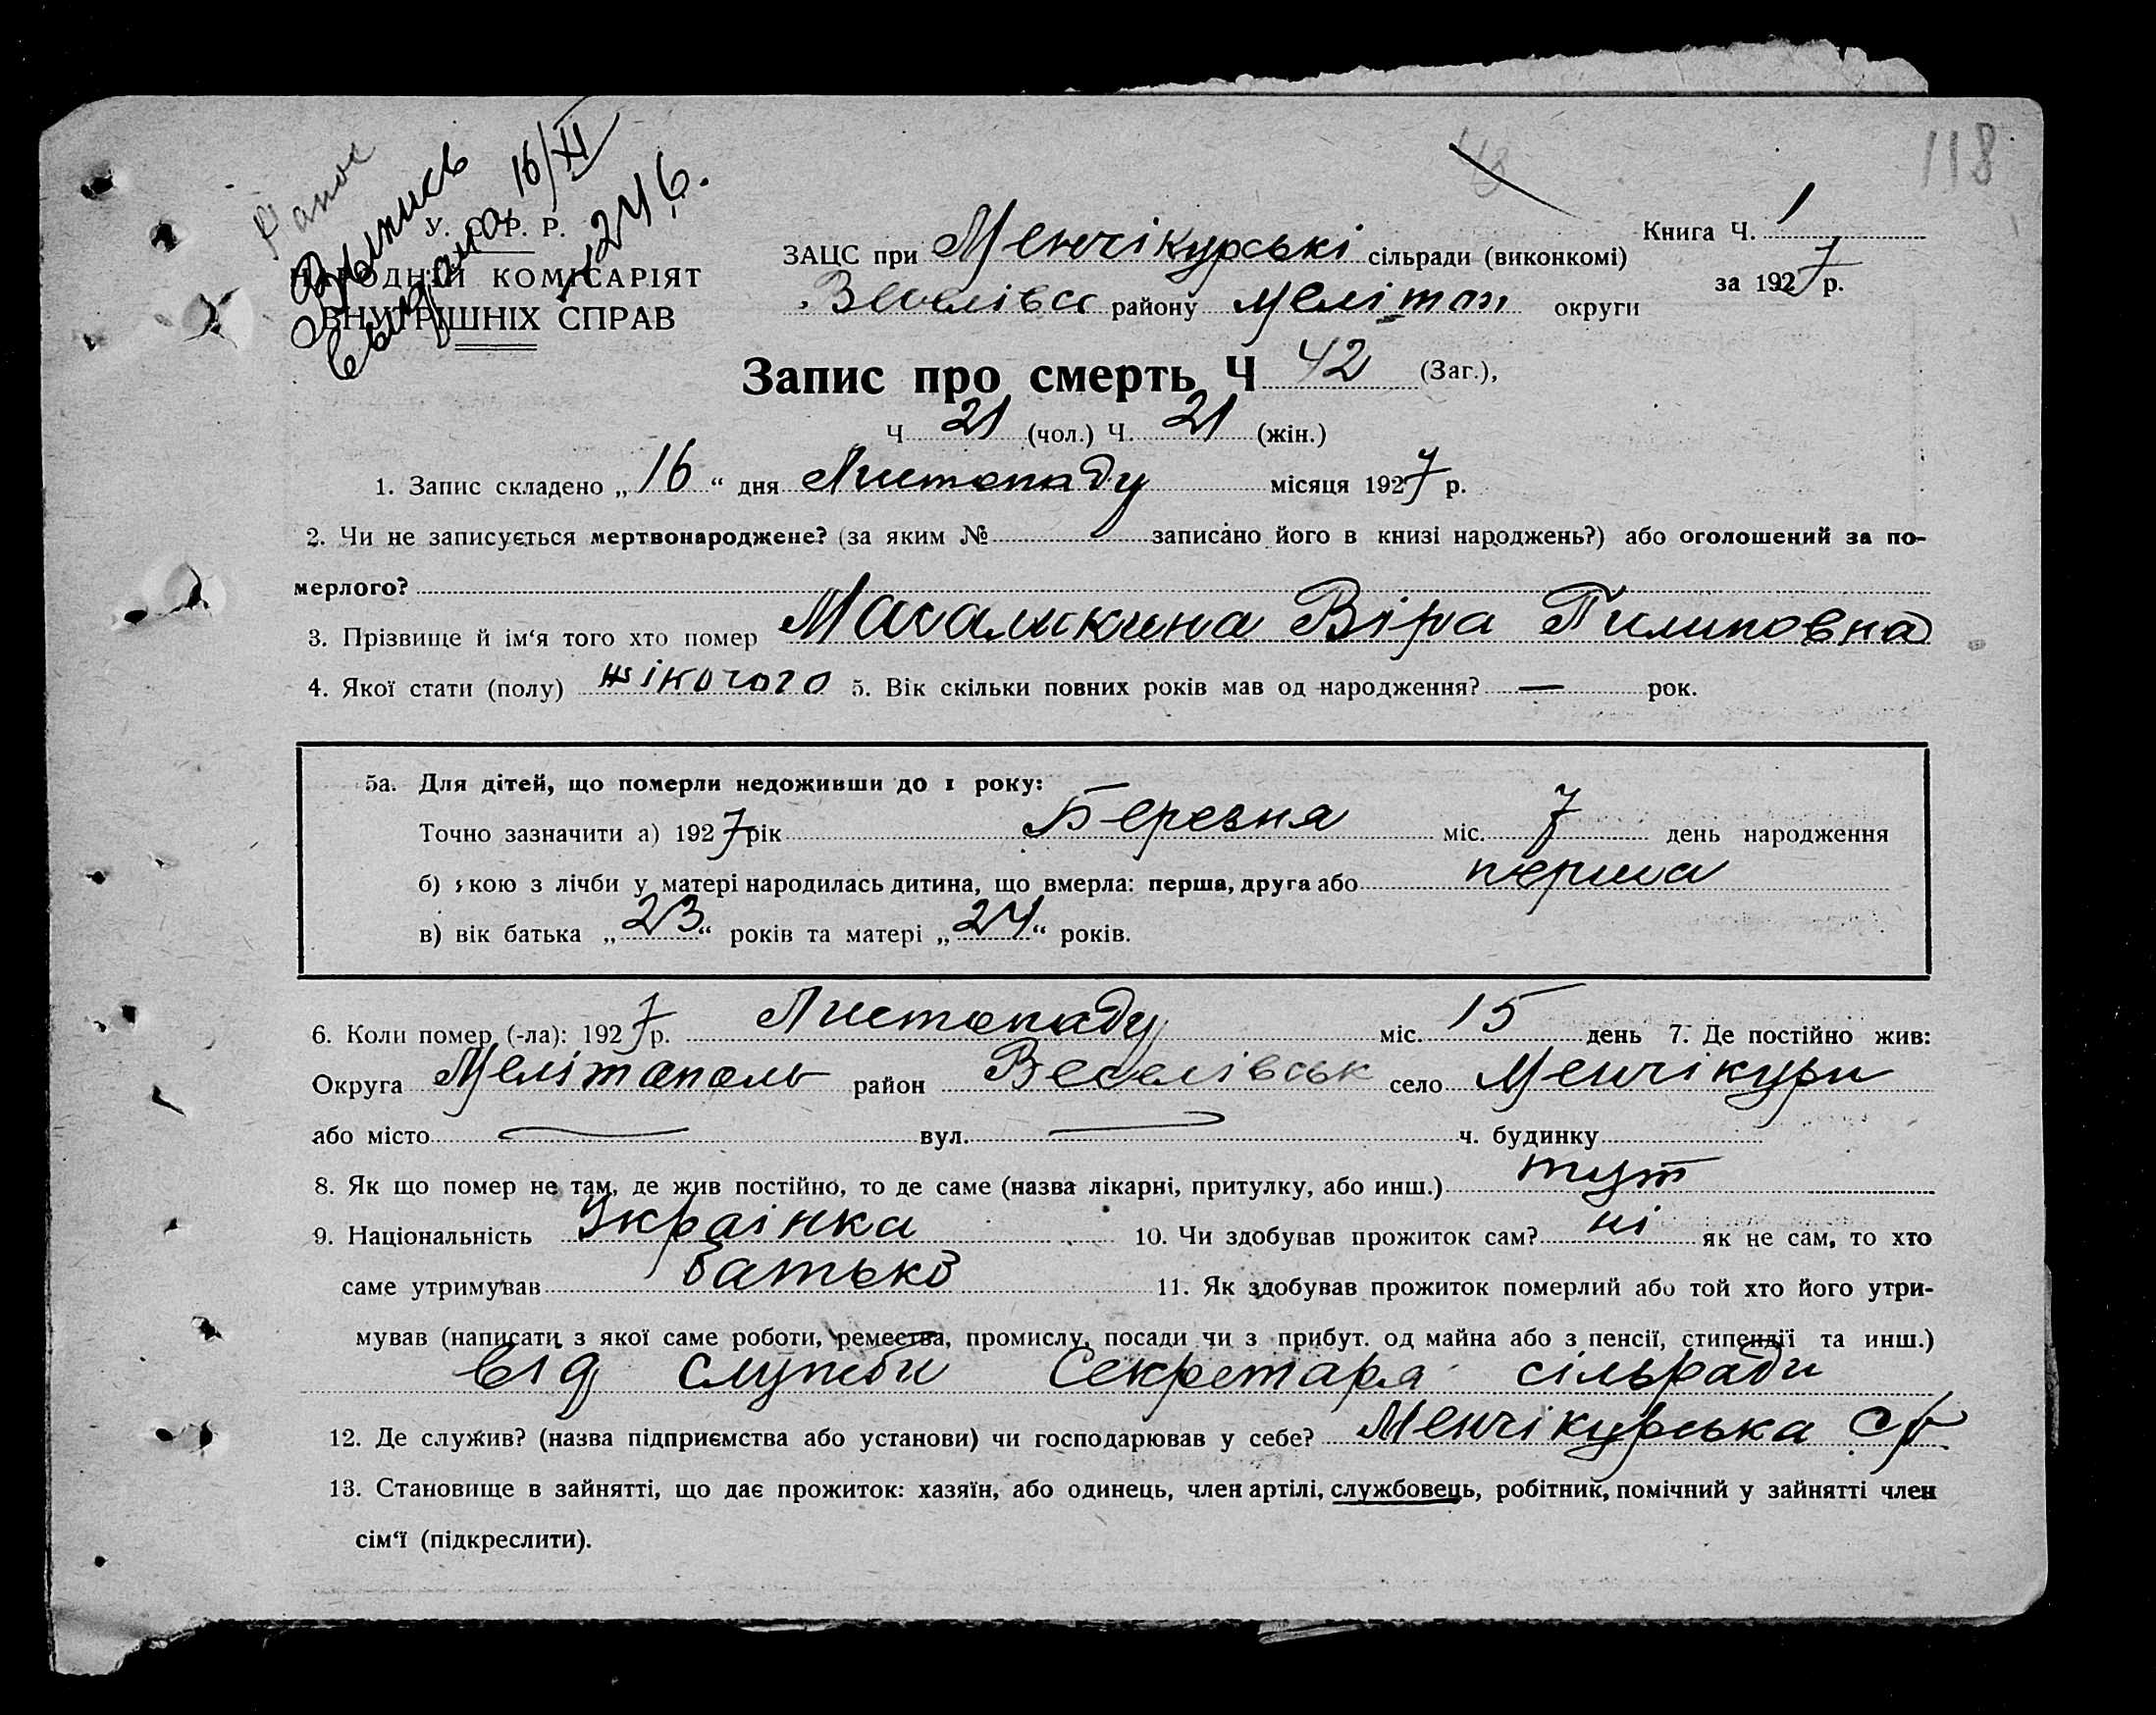 118
Выпись
выдана 16/XI
1246.
У. С. Р. Р.
НАРОДНІЙ КОМІСАРІЯТ
ВНУТРІШНІХ СПРАВ
Книга Ч. 1
за 1927 р.
ЗАЦС при Менчікурські сільради (виконкомі)
Веселівск району Мелітоп округи
Запис про смерть Ч 42 (Заг.),
Ч 21 (чол.) Ч. 21 (жін.)
1. Запис складено „16“ дня Листопаду місяця 1927 р.
2. Чи не записується мертвонароджене? (за яким № записано його в книзі народжень?) або оголошений за по-
мерлого?
3. Прізвище й ім‘я того хто помер Віра Пилиповна
4. Якої стати (полу) жіночого 5. Вік скільки повних років мав од народження? — рок.
5а. Для дітей, що померли недоживши до 1 року:
Точно зазначити а) 1927 рік Березня міс. 7 день народження
б) якою з лічби у матері народилась дитина, що вмерла: перша, друга або перша
в) вік батька „23“ років та матері „24“ років.
6. Коли помер (-ла): 1927 р. Листопаду міс. 15 день 7. Де постійно жив:
Округа Мелітополь район Веселівськ село Менчікури
або місто вул. ч. будинку
8. Як що помер не там, де жив постійно, то де саме (назва лікарні, притулку, або инш.) тут
9. Національність Украінка 10. Чи здобував прожиток сам? ні як не сам, то хто
саме утримував батько 11. Як здобував прожиток померлий або той хто його утри-
мував (написати з якої саме роботи, ремества, промислу, посади чи з прибут. од майна або з пенсії, стипендії та инш.)
від служби Секретаря сільради
12. Де служив? (назва підприємства або установи) чи господарював у себе? Менчікурська с/р
13. Становище в зайнятті, що дає прожиток: хазяїн, або одинець, член артілі, службовець, робітник, помічний у зайнятті член
сім‘ї (підкреслити).